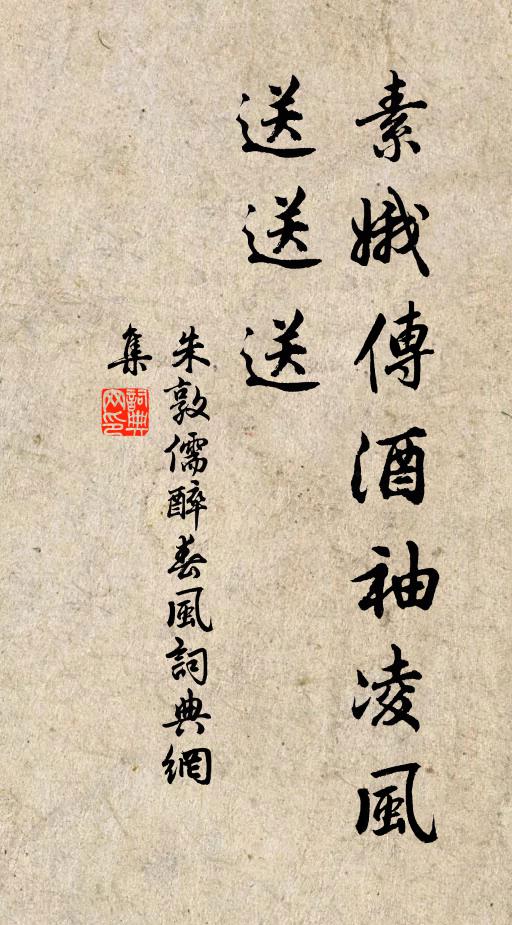 素娥傳酒袖凌風
送送送
朱敦儒醉春風詞典網
集
詞典
网印